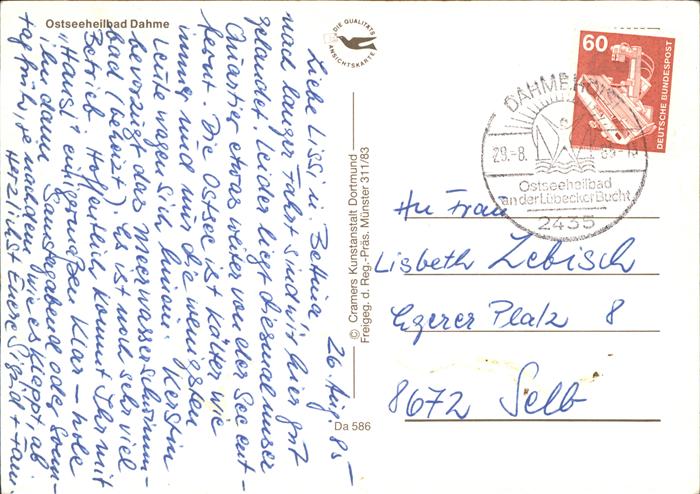 Ostseeheilbad Dahme
DIE QUALITÄTS
ANSICHTSKARTE
26. Aug. 85
Liebe Lissi u. Bettina
nach langer Fahrt sind wir hier gut
gelandet. Leider liegt diesmal unser
Quartier etwas weiter von der See ent-
fernt. Die Ostsee ist kälter wie
immer und nur die wenigsten
Leute wagen sich hinein. Kerstin
bevorzugt das Meerwasserschwimm-
bad (beheizt). Es ist noch sehr viel
Betrieb. Hoffentlich kommt Ihr mit
"Hansi" einigermaßen klar – hole
ihn dann Samstagabend oder Sonn-
tag früh, je nachdem wie es klappt ab
Herzlichst Eure Sigrid + Fam.
© Cramers Kunstanstalt Dortmund
Freigeg. d. Reg.-Präs. Münster 311/83
Da 586
60
DEUTSCHE BUNDESPOST
DAHME, HOLST
29.-8.
Ostseeheilbad
an der Lübecker Bucht
2435
An Frau
Lisbeth Zebisch
Egerer Platz 8
8672 Selb